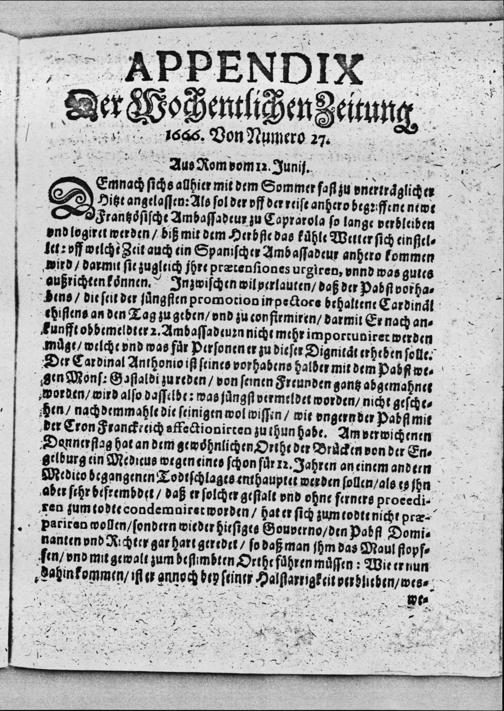 APPENDIX
Der Wochentlichen Zeitung
1666. Von Numero 27.
Aus Rom vom 12. Junij.
DEmnach sichs allhier mit dem Sommer fast zu vnerträglicher
Hitze angelassen: Als sol der vff der reise anhero begriffene newe
Frantzösische Ambassadeur zu Caprarola so lange verbleiben
vnd logiret werden / biß mit dem Herbste das kühle Wetter sich einstel-
let: vff welche Zeit auch ein Spanischer Ambassadeur anhero kommen
wird / darmit sie zugleich jhre prætensiones urgiren, vnnd was gutes
außrichten können. Inzwischen wil verlauten / daß der Pabst vorha-
bens / die seit der jüngsten promotion in pectore behaltene Cardinäl
ehistens an den Tag zu geben / vnd zu confirmiren / darmit Er nach an-
kunfft obbemeldter 2. Ambassadeurn nicht mehr importuniret werden
müge / welche vnd was für Personen er zu dieser Dignität erheben solle.
Der Cardinal Anthonio ist seines vorhabens halber mit dem Pabst we-
gen Mons: Gastaldi zu reden / von seinen Freunden gantz abgemahnet
worden / wird also dasselbe: was jüngst vermeldet worden / nicht gesche-
hen / nachdemmahle die seinigen wol wissen / wie vngern der Pabst mit
der Cron Franckreich affectioniren zu thun habe. Am verwichenen
Donnerstag hat an dem gewöhnlichen Orthe der Brücken von der En-
gelburg ein Medicus wegen eines schon für 12. Jahren an einem andern
Medico begangenen Todtschlages enthauptet werden sollen / als es jhn
aber sehr befrembdet / daß er solcher gestalt vnd ohne ferners procedi-
ren zum todte condemniret worden / hat er sich zum todte nicht præ-
pariren wollen / sondern wieder hiesiges Gouverno / den Pabst Domi-
nanten vnd Richter gar hart geredet / so daß man jhm das Maul stopf-
fen / vnd mit gewalt zum bestimbten Orthe führen müssen: Wie er nun
dahin kommen / ist er annoch bey seiner Halstarrigkeit verblieben / wes-
we-